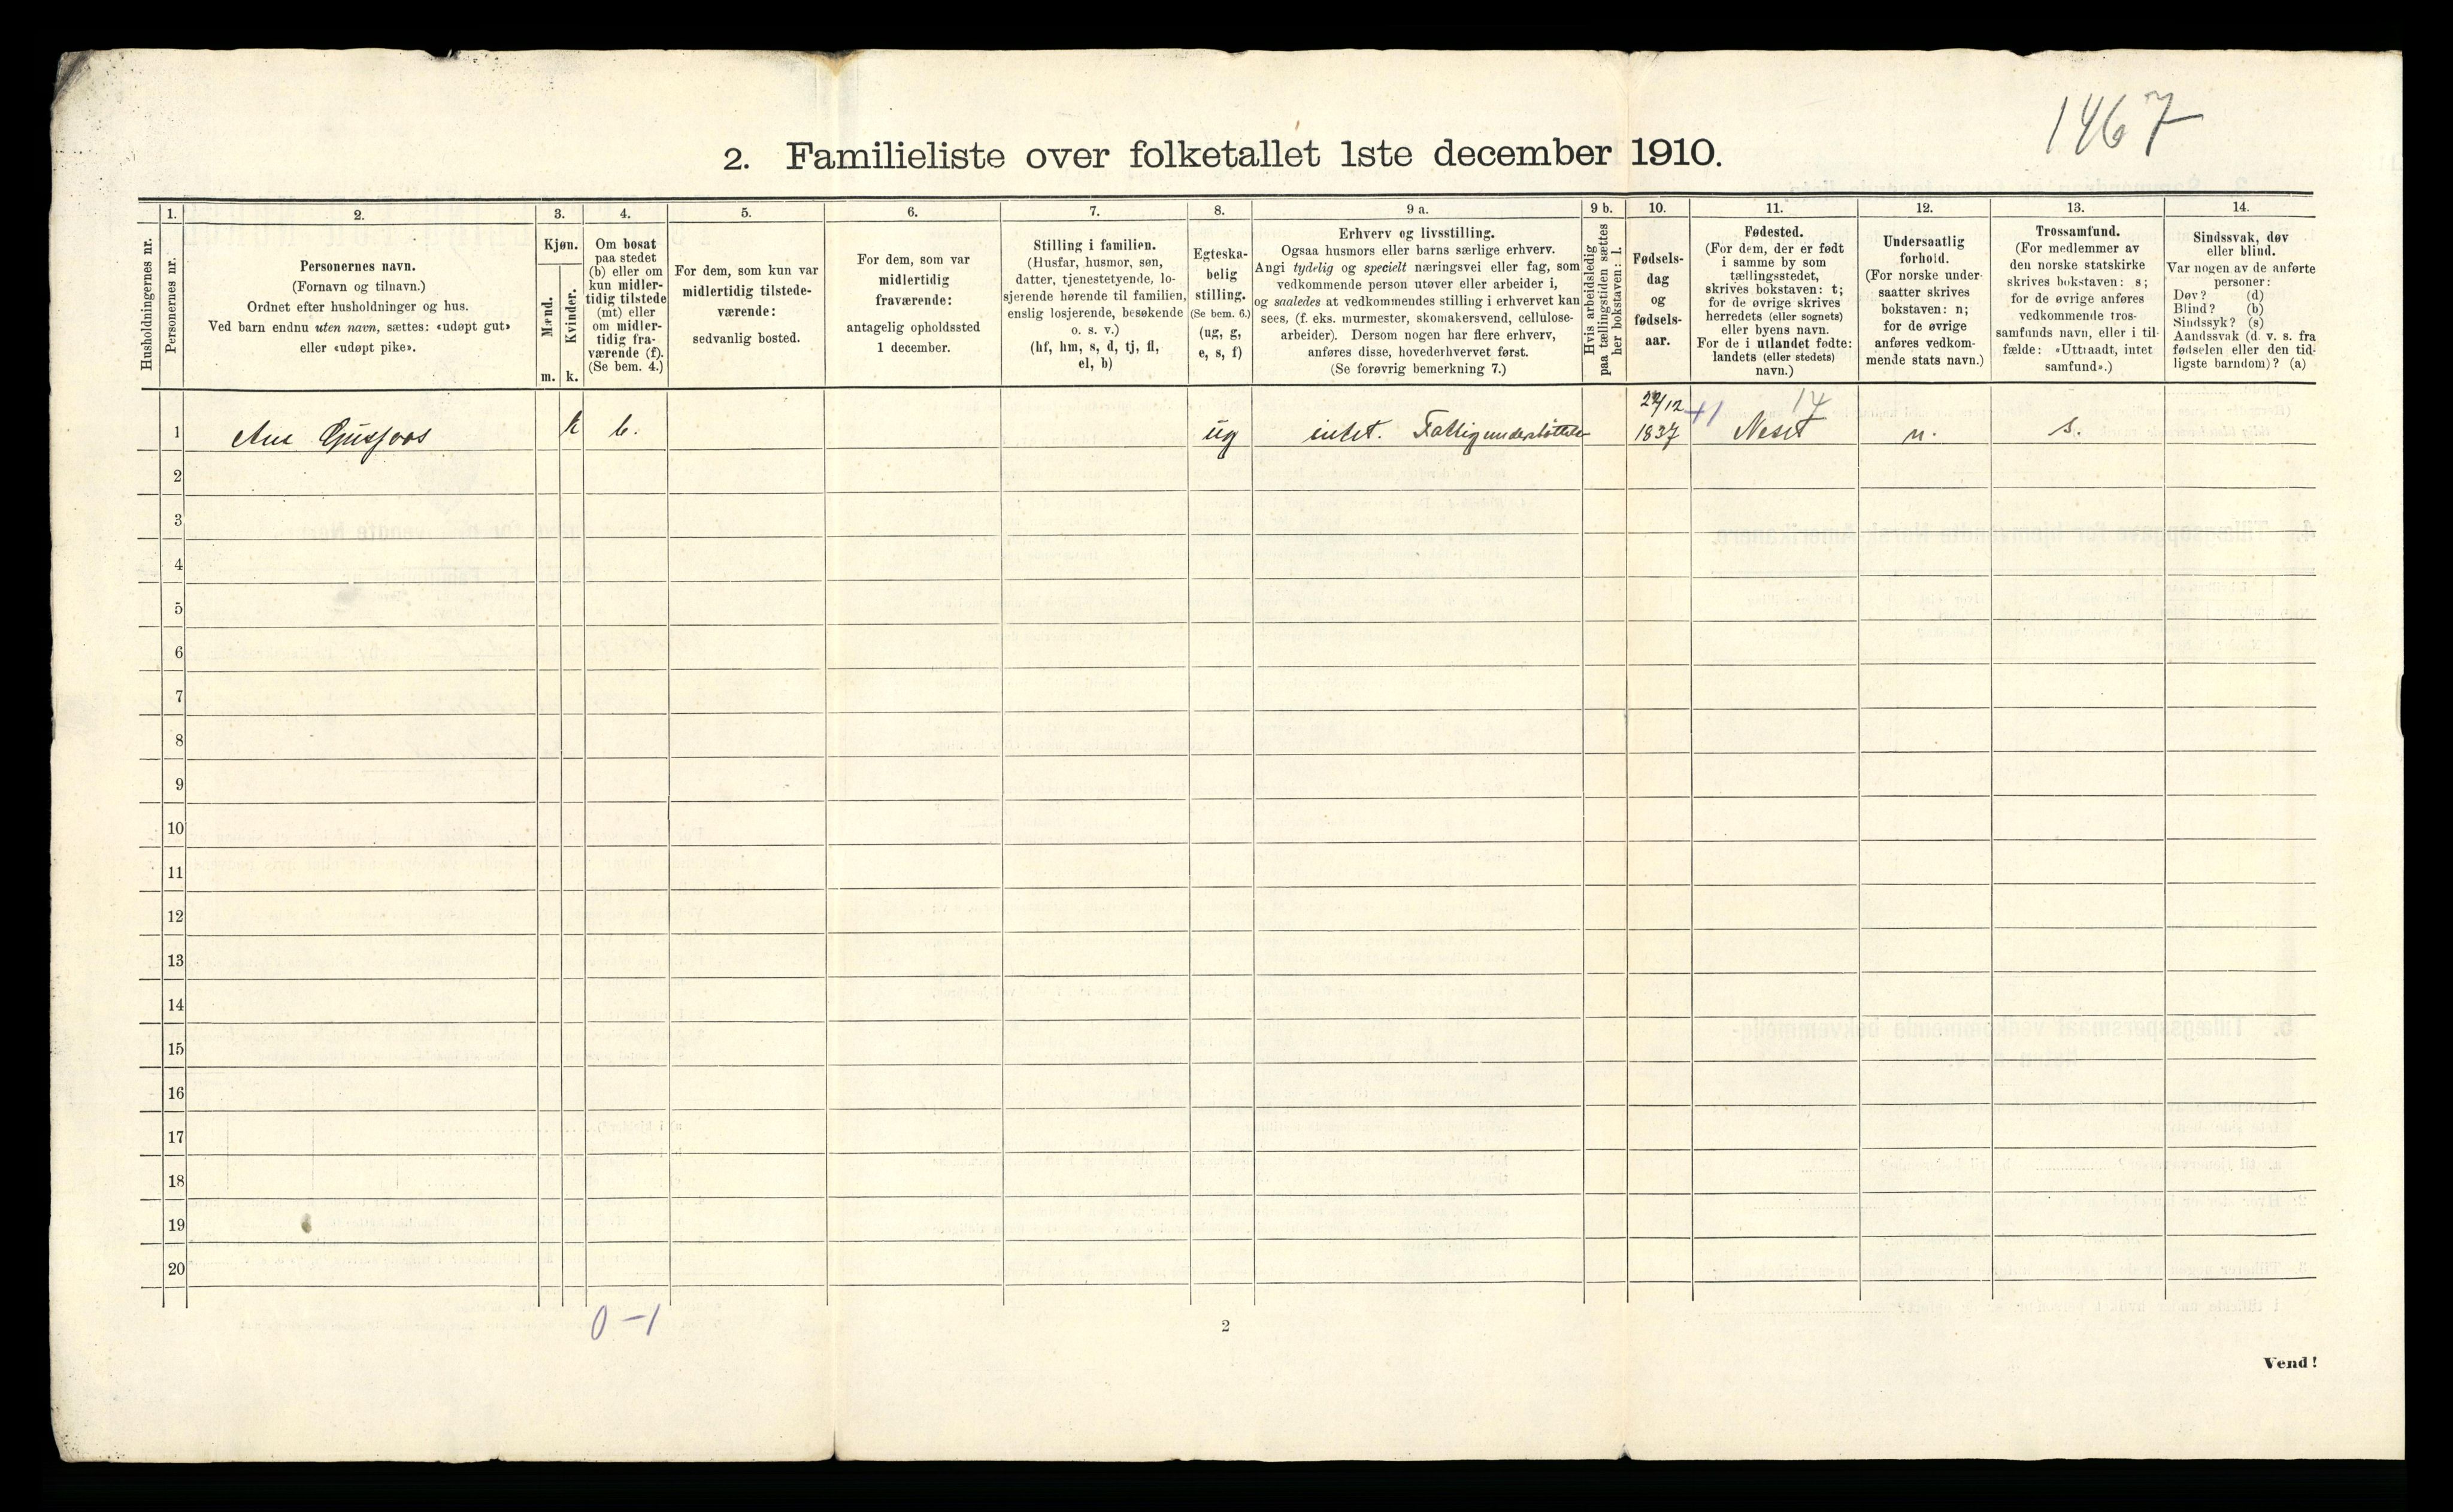 1467
2. Familieliste over folketallet 1ste december 1910.
1. 2. 3. 4. 5. 6. 7. 8. 9 a. 9 b. 10. 11. 12. 13. 14.
Husholdningernes nr.
Personernes nr.
Personernes navn.
(Fornavn og tilnavn.)
Ordnet efter husholdninger og hus.
Ved barn endnu uten navn, sættes: «udøpt gut»
eller «udøpt pike».
Kjøn.
Mænd.
m.
Kvinder.
k.
Om bosat
paa stedet
(b) eller om
kun midler-
tidig tilstede
(mt) eller
om midler-
tidig fra-
værende (f).
(Se bem. 4.)
For dem, som kun var
midlertidig tilstede-
værende:
sedvanlig bosted.
For dem, som var
midlertidig
fraværende:
antagelig opholdssted
1 december.
Stilling i familien.
(Husfar, husmor, søn,
datter, tjenestetyende, lo-
sjerende hørende til familien,
enslig losjerende, besøkende
o. s. v.)
(hf, hm, s, d, tj, fl,
el, b)
Egteska-
belig
stilling.
(Se bem. 6.)
(ug, g,
e, s, f)
Erhverv og livsstilling.
Ogsaa husmors eller barns særlige erhverv.
Angi tydelig og specielt næringsvei eller fag, som
vedkommende person utøver eller arbeider i,
og saaledes at vedkommendes stilling i erhvervet kan
sees, (f. eks. murmester, skomakersvend, cellulose-
arbeider). Dersom nogen har flere erhverv,
anføres disse, hovederhvervet først.
(Se forøvrig bemerkning 7.)
Hvis arbeidsledig
paa tællingstiden sættes
her bokstaven: l.
Fødsels-
dag
og
fødsels-
aar.
Fødested.
(For dem, der er født
i samme by som
tællingsstedet,
skrives bokstaven: t;
for de øvrige skrives
herredets (eller sognets)
eller byens navn.
For de i utlandet fødte:
landets (eller stedets)
navn.)
Undersaatlig
forhold.
(For norske under-
saatter skrives
bokstaven: n;
for de øvrige
anføres vedkom-
mende stats navn.)
Trossamfund.
(For medlemmer av
den norske statskirke
skrives bokstaven: s;
for de øvrige anføres
vedkommende tros-
samfunds navn, eller i til-
fælde: «Uttraadt, intet
samfund».)
Sindssvak, døv
eller blind.
Var nogen av de anførte
personer:
Døv? (d)
Blind? (b)
Sindssyk? (s)
Aandssvak (d. v. s. fra
fødselen eller den tid-
ligste barndom)? (a)
22/12 +1 14
1 k b. ug intet. Fattigunderstøttelse 1837 Neset n. s.
2
3
4
5
6
7
8
9
10
11
12
13
14
15
16
17
18
19
20
0-1
2
Vend!